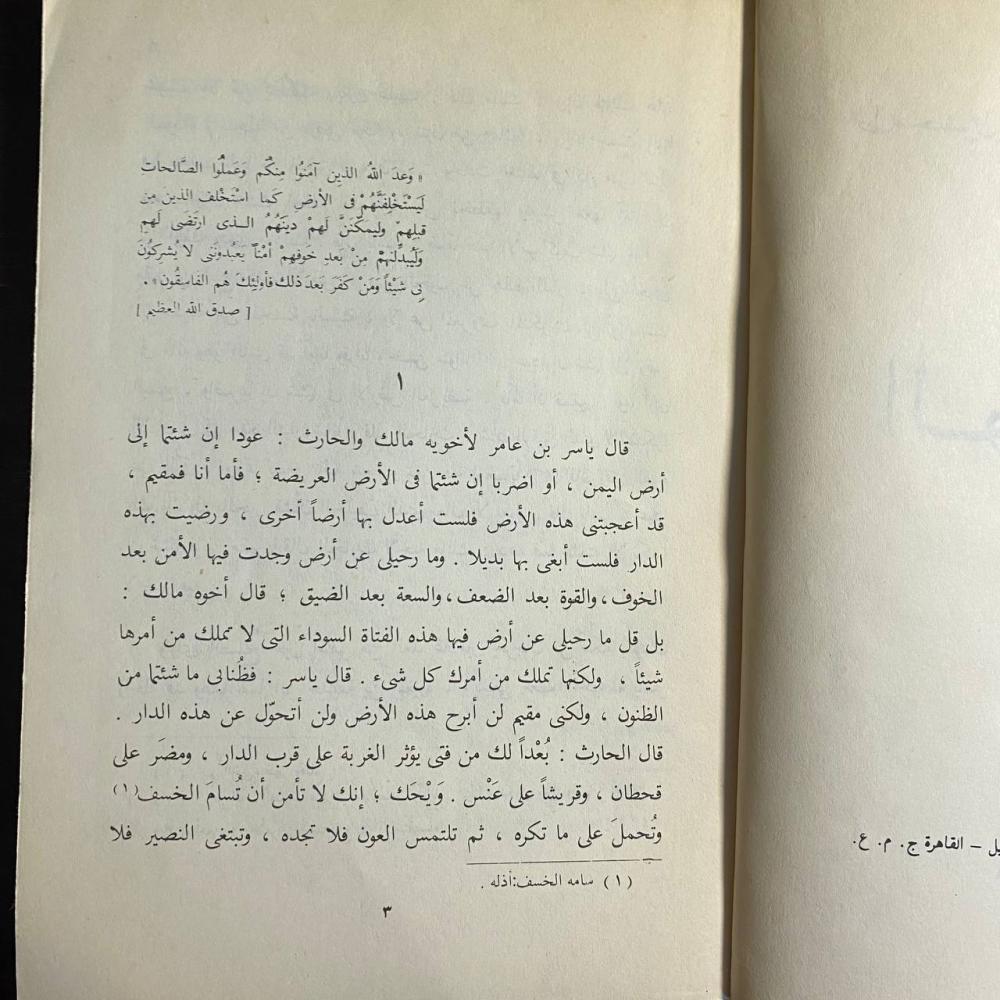 « وَعدَ اللهُ الذين آمَنُوا مِنكُم وَعَملُوا الصَّالحات
لَيَسْتَخْلِفَنَّهُمْ فى الأرضِ كَما اسْتَخْلف الذينَ مِن
قبلِهِمْ وليمَكّننَّ لَهمْ دينَهُمُ الــذى ارتَضَى لَهم
وَلَيُبدِّلنهمْ مِنْ بَعدِ خَوفهِمْ أمْناً يَعْبُدونَنى لا يُشركُونَ
بى شَيْئاً وَمَنْ كَفَرَ بَعدَ ذلك فأولئِكَ هُم الفاسقُون » .
[ صدق الله العظيم ]
١
قال ياسر بن عامر لأخويه مالك والحارث : عودا إن شئتما إلى
أرض اليمن ، أو اضربا إن شئتما فى الأرض العريضة ؛ فأما أنا فمقيم ،
قد أعجبتنى هذه الأرض فلست أعدل بها أرضاً أخرى ، ورضيت بهذه
الدار فلست أبغى بها بديلا . وما رحيلى عن أرض وجدت فيها الأمن بعد
الخوف ، والقوة بعد الضعف ، والسعة بعد الضيق ؛ قال أخوه مالك :
بل قل ما رحيلى عن أرض فيها هذه الفتاة السوداء التى لا تملك من أمرها
شيئاً ، ولكنها تملك من أمرك كل شىء . قال ياسر : فظُنابى ما شئتما من
الظنون ، ولكنى مقيم لن أبرح هذه الأرض ولن أتحوّل عن هذه الدار .
قال الحارث : بُعْداً لك من فتى يؤثر الغربة على قرب الدار ، ومضَر على
قحطان ، وقريشاً على عَنْس . وَيْحَك ؛ إنك لا تأمن أن تُسامَ الخسف(١)
وتُحملَ على ما تكره ، ثم تلتمس العون فلا تجده ، وتبتغى النصير فلا
(١) سامه الخسف:أذله .
٣
– القاهرة ج. م. ع.